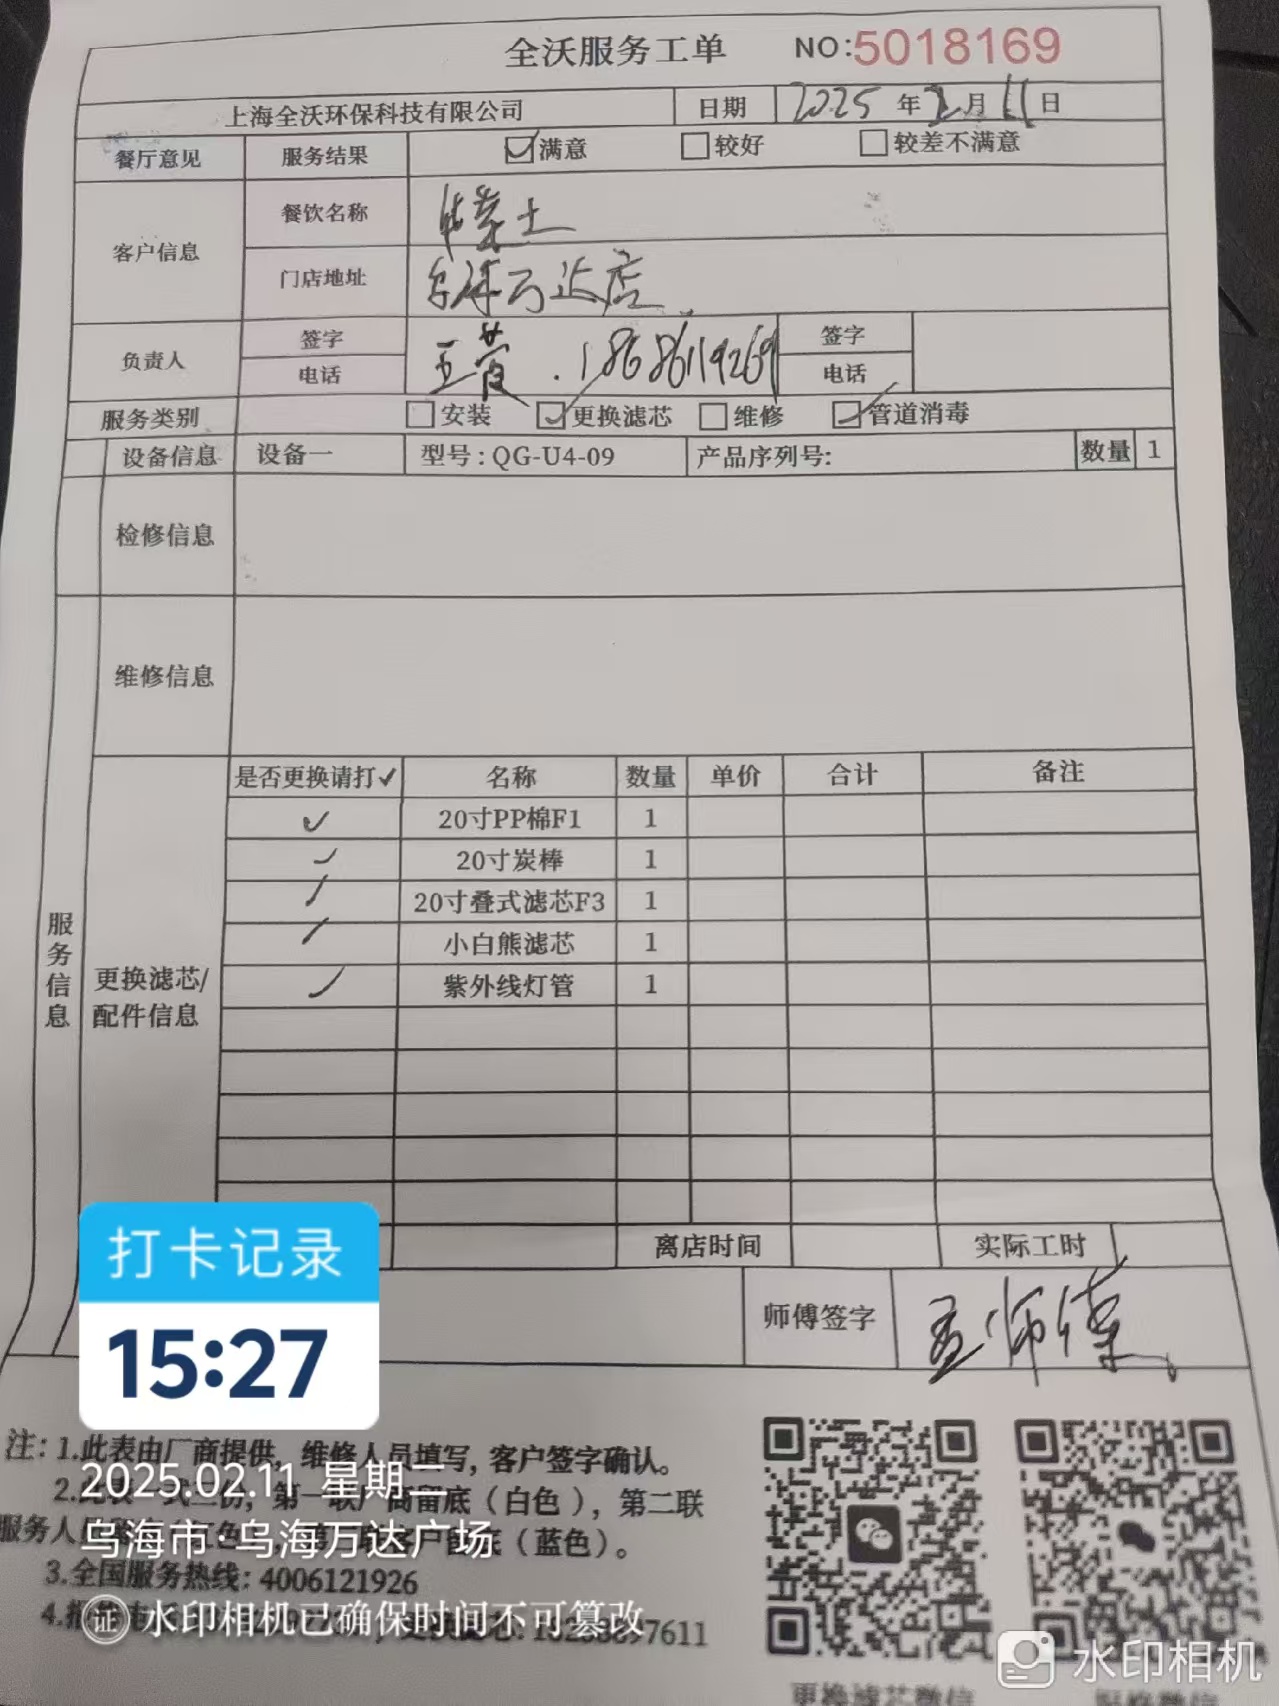 全沃服务工单 NO:5018169
上海全沃环保科技有限公司 日期 2025年2月11日
餐厅意见 服务结果 满意 较好 较差不满意
客户信息 餐饮名称
门店地址 乌海万达店
负责人 签字 电话 王 18686119269 签字 电话
服务类别 安装 更换滤芯 维修 管道消毒
设备信息 设备一 型号:QG-U4-09 产品序列号: 数量 1
检修信息
维修信息
服务信息
更换滤芯/配件信息
是否更换请打✓ 名称 数量 单价 合计 备注
✓ 20寸PP棉F1 1
✓ 20寸炭棒 1
✓ 20寸叠式滤芯F3 1
✓ 小白熊滤芯 1
✓ 紫外线灯管 1
离店时间 实际工时
师傅签字 孟师傅
打卡记录
15:27
注:1.此表由厂商提供,维修人员填写,客户签字确认。
2025.02.11 星期二
2.此表一式三份,第一联厂商留底(白色),第二联
服务人员 客户留底(蓝色)。
乌海市·乌海万达广场
3.全国服务热线:4006121926
4.
证 水印相机已确保时间不可篡改
水印相机
更换滤芯微信